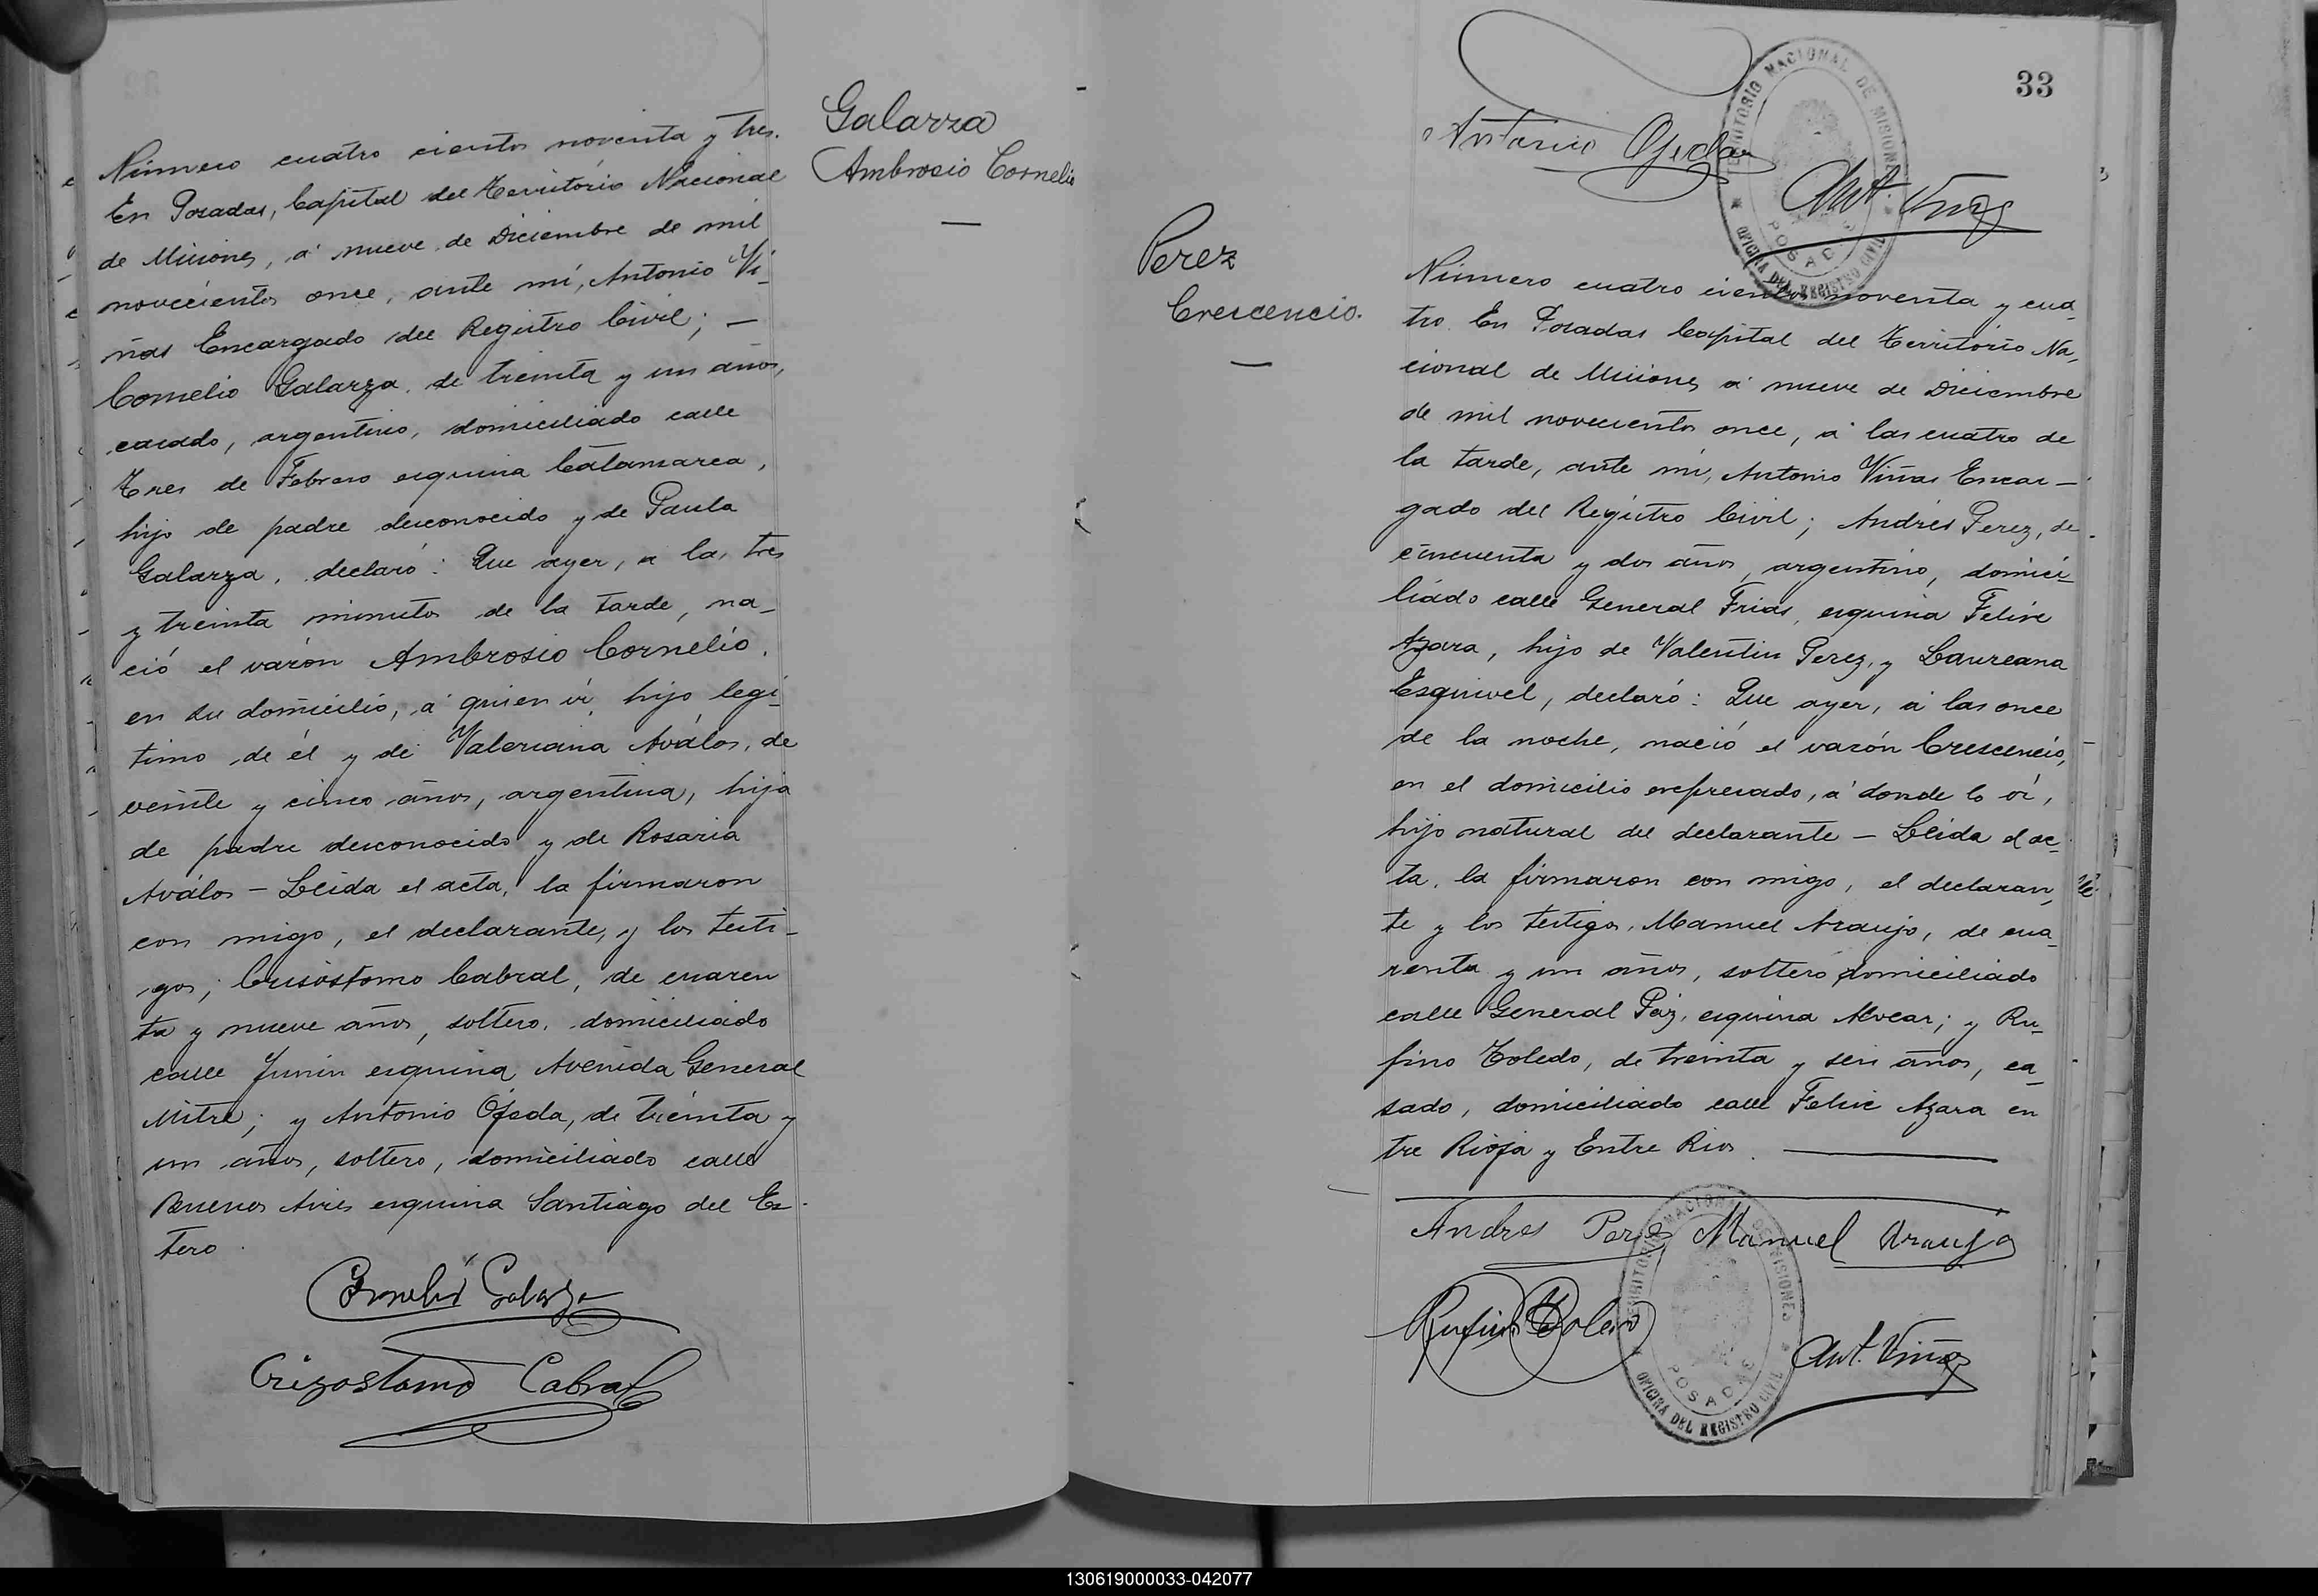 Galarza
Ambrosio Cornelio
Número cuatro cientos noventa y tres.
En Posadas, Capital del Territorio Nacional
de Misiones, á nueve de Diciembre de mil
novecientos once, ante mí, Antonio Vi-
ñas Encargado del Registro Civil; —
Cornelio Galarza, de treinta y un años,
casado, argentino, domiciliado calle
Tres de Febrero esquina Catamarca,
hijo de padre desconocido y de Paula
Galarza, declaró: Que ayer, a las tres
y treinta minutos de la tarde, na-
ció el varón Ambrosio Cornelio,
en su domicilio, á quien ví, hijo legí-
timo de él y de Valeriana Aválos, de
veinte y cinco años, argentina, hija
de padre desconocido y de Rosaria
Aválos — Leida el acta, la firmaron
con migo, el declarante, y los testi-
gos; Crisóstomo Cabral, de cuaren
ta y nueve años, soltero, domiciliado
calle Junin esquina Avenida General
Mitre; y Antonio Ojeda, de treinta y
un años, soltero, domiciliado calle
Buenos Aires esquina Santiago del Es-
tero.
Cornelio Galarza
Crizostomo Cabral
33
Antonio Ojeda
Ant. Viñas
TERRITORIO NACIONAL DE MISIONES
POSADAS
OFICINA DEL REGISTRO CIVIL
Perez
Crescencio.
Número cuatro cientos noventa y cua-
tro. En Posadas Capital del Territorio Na-
cional de Misiones á nueve de Diciembre
de mil novecientos once, á las cuatro de
la tarde, ante mí, Antonio Viñas Encar-
gado del Registro Civil; Andrés Perez, de
cincuenta y dos años, argentino, domici-
liado calle General Frias, esquina Felix
Azara, hijo de Valentin Perez, y Laureana
Esquivel, declaró: Que ayer, á las once
de la noche, nació el varón Crescencio,
en el domicilio expresado, á donde lo ví,
hijo natural del declarante — Leida el ac-
ta, la firmaron con migo, el declaran-
te y los testigos, Manuel Araujo, de cua-
renta y un años, soltero domiciliado
calle General Paz, esquina Alvear; y Ru-
fino Toledo, de treinta y seis años, ca-
sado, domiciliado calle Felix Azara en
tre Rioja y Entre Rios.
Andres Perez Manuel Araujo
Rufino Toledo
Ant. Viñas
TERRITORIO NACIONAL DE MISIONES
POSADAS
OFICINA DEL REGISTRO CIVIL
130619000033-042077